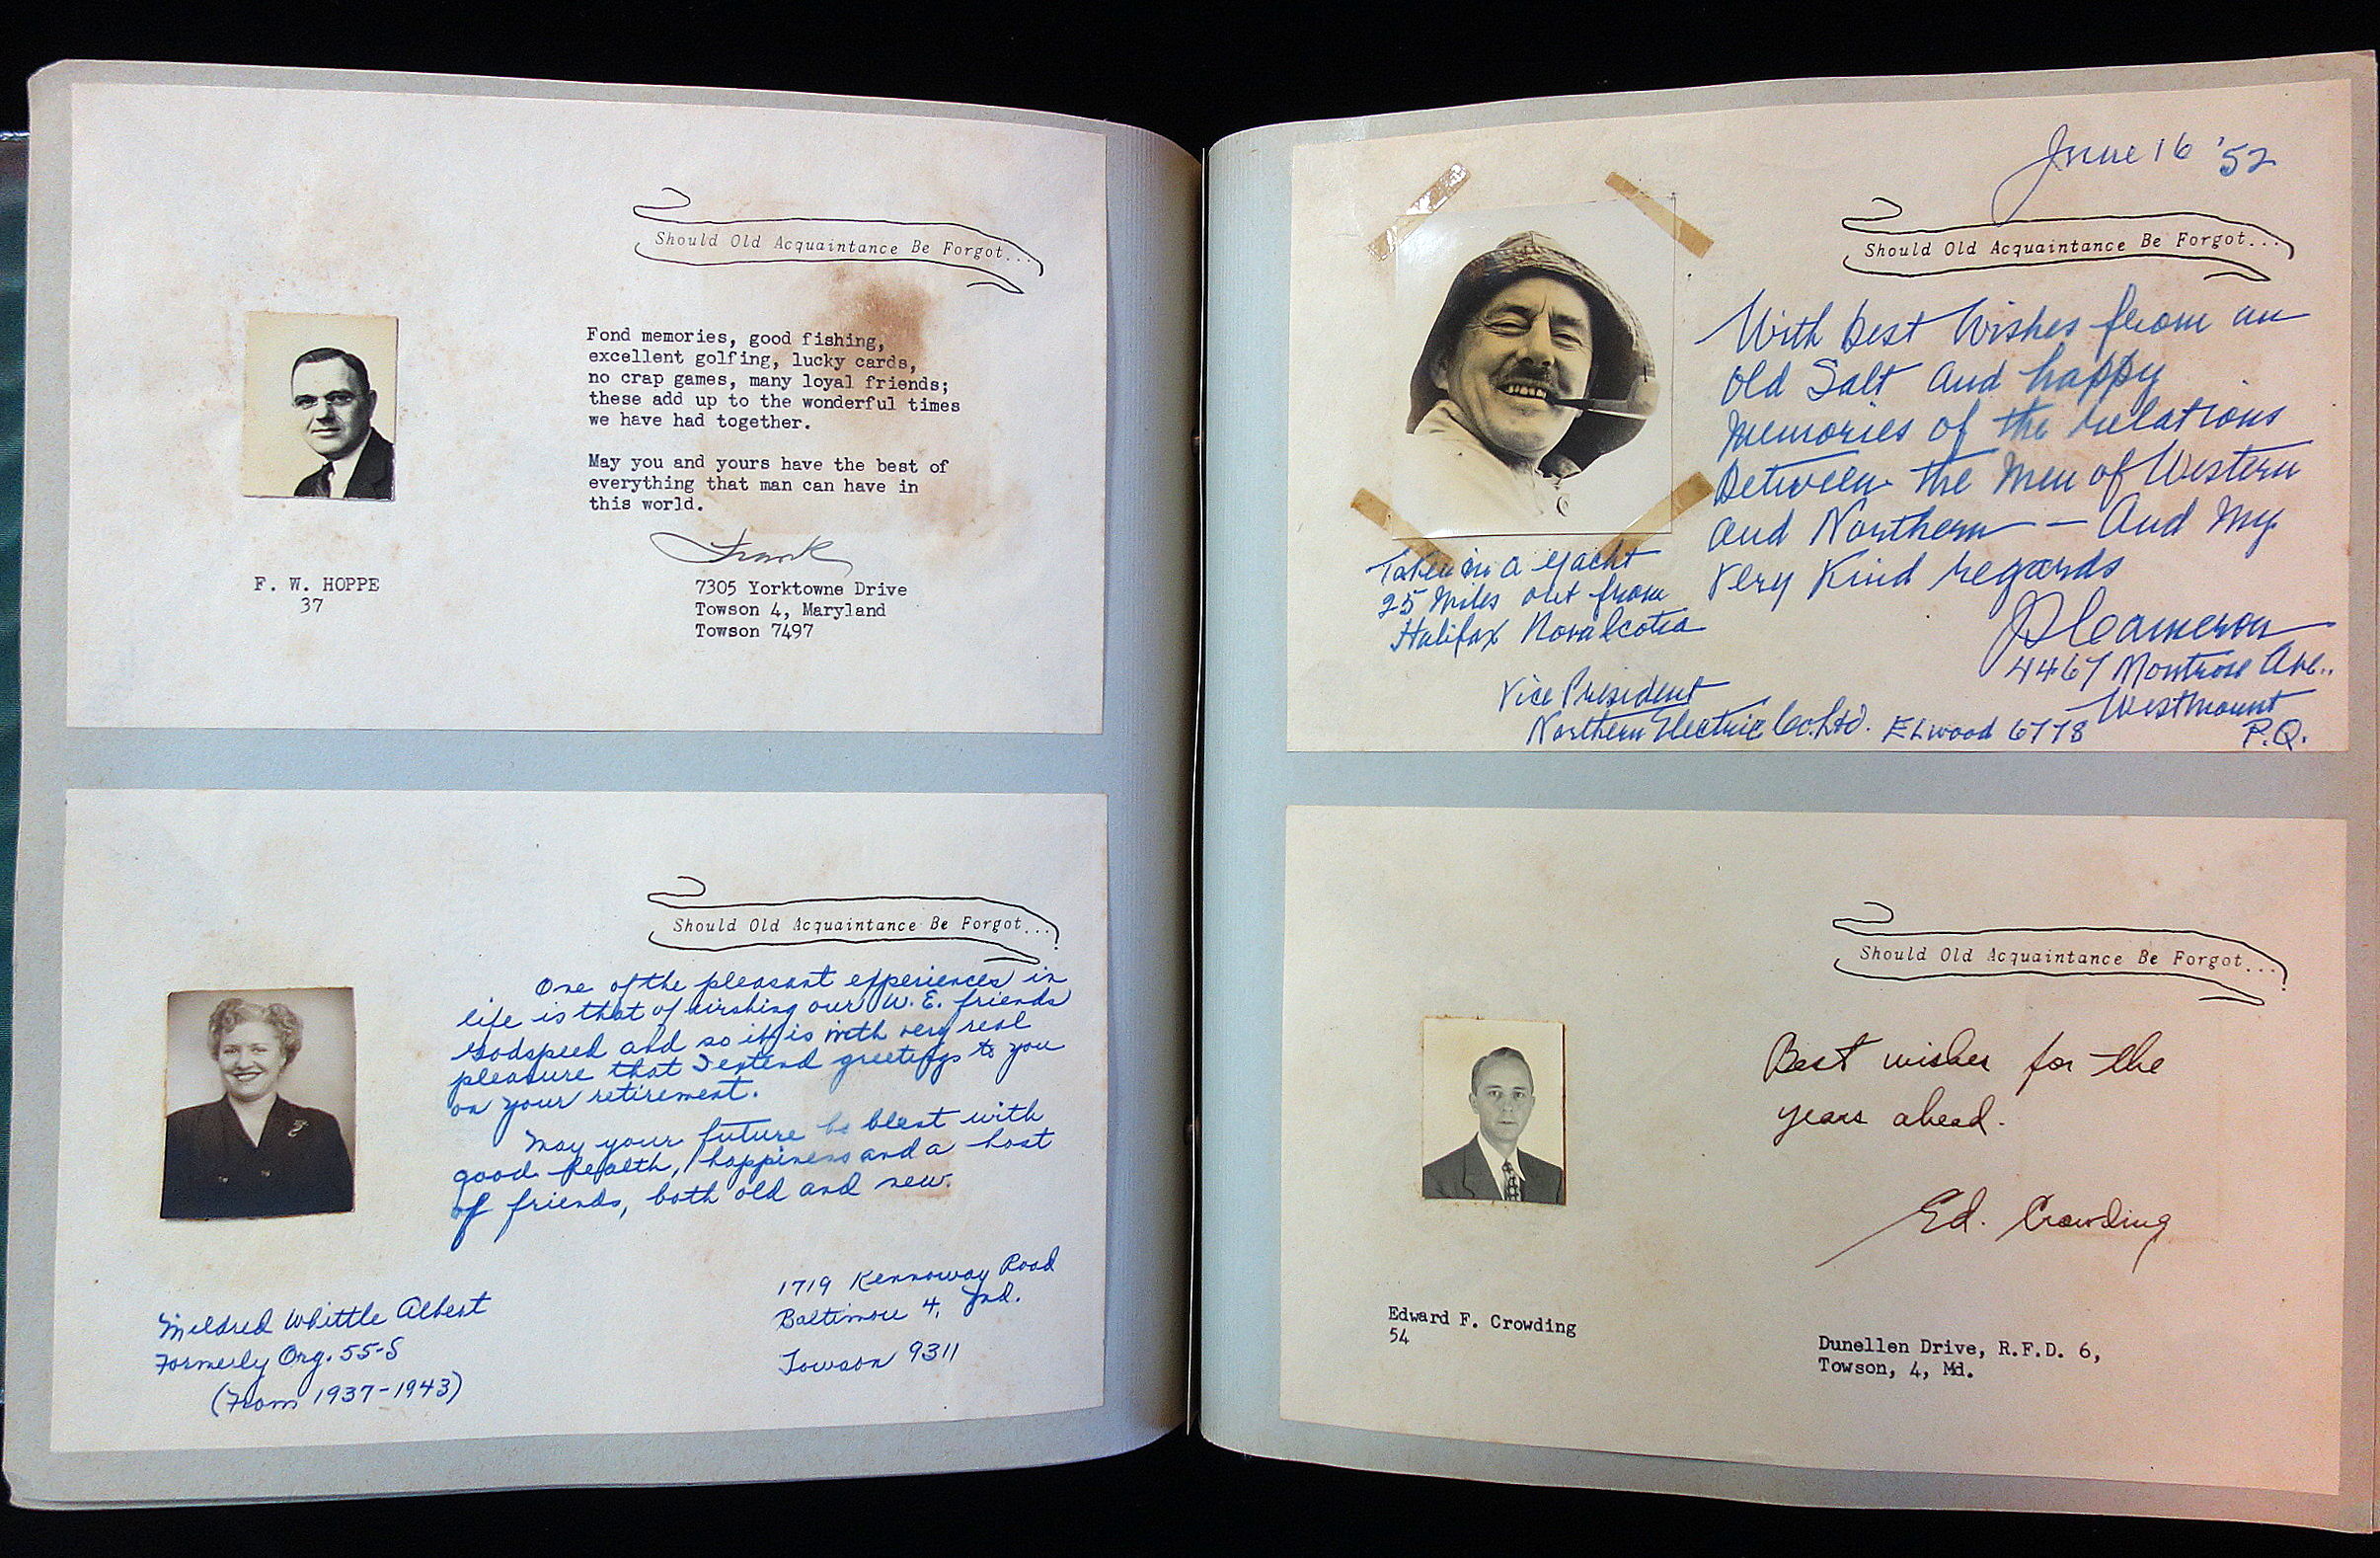 Should Old Acquaintance Be Forgot...
Fond memories, good fishing,
excellent golfing, lucky cards,
no crap games, many loyal friends;
these add up to the wonderful times
we have had together.
May you and yours have the best of
everything that man can have in
this world.
Frank
F. W. HOPPE
37
7305 Yorktowne Drive
Towson 4, Maryland
Towson 7497
Should Old Acquaintance Be Forgot...
One of the pleasant experiences in
life is that of wishing our W. E. friends
Godspeed and so it is with very real
pleasure that I extend greetings to you
on your retirement.
May your future be blest with
good health, happiness and a host
of friends, both old and new.
Mildred Whittle Albert
Formerly Org. 55-S
(From 1937-1943)
1719 Kennoway Road
Baltimore 4, Md.
Towson 9311
June 16 '52
Should Old Acquaintance Be Forgot...
With Best Wishes from an
Old Salt and happy
Memories of the relations
Between the Men of Western
and Northern — And My
Very Kind regards
Taken on a yacht
25 Miles out from
Halifax Nova Scotia
Cameron
4467 Montrose Ave..
Westmount
P.Q.
Vice President
Northern Electric Co. Ltd. ELwood 6778
Should Old Acquaintance Be Forgot...
Best wishes for the
years ahead.
Ed. Crowding
Edward F. Crowding
54
Dunellen Drive, R.F.D. 6,
Towson, 4, Md.